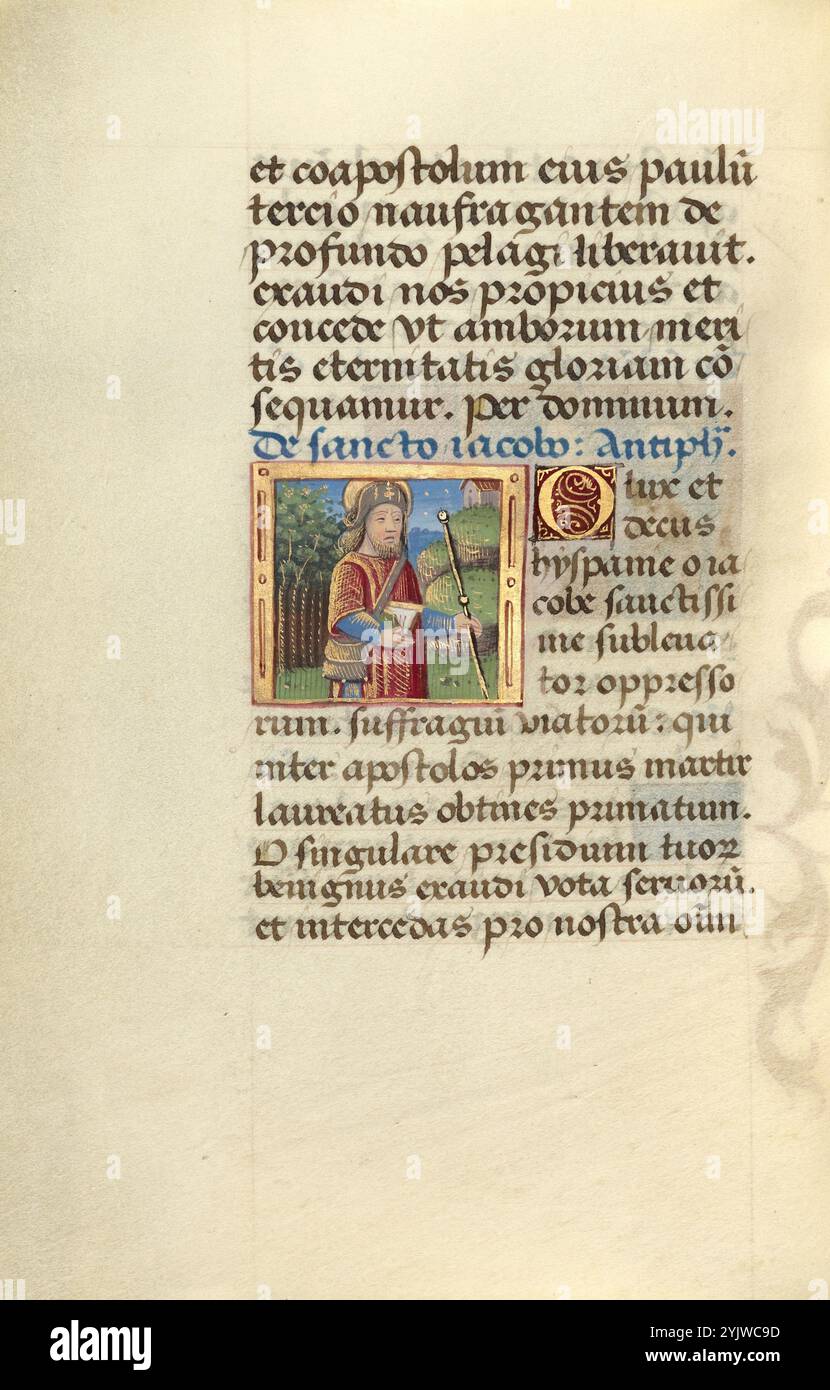 et coapostolum eius paulū
tercio naufragantem de
profundo pelagi liberauit.
exaudi nos propicius et
concede vt amborum meri
tis eternitatis gloriam cō
sequamur. Per dominum.
De sancto iacobo: Antiph'.
O lux et
decus
hyspanie o ia
cobe sanctissi
me subleua
tor oppresso
rum. suffragiū viatorū: qui
inter apostolos primus martir
laureatus obtines primatum.
O singulare presidium tuoꝝ
benignus exaudi vota seruorū.
et intercedas pro nostra oīm
alamy
Image ID: 2YJWC9D
www.alamy.com